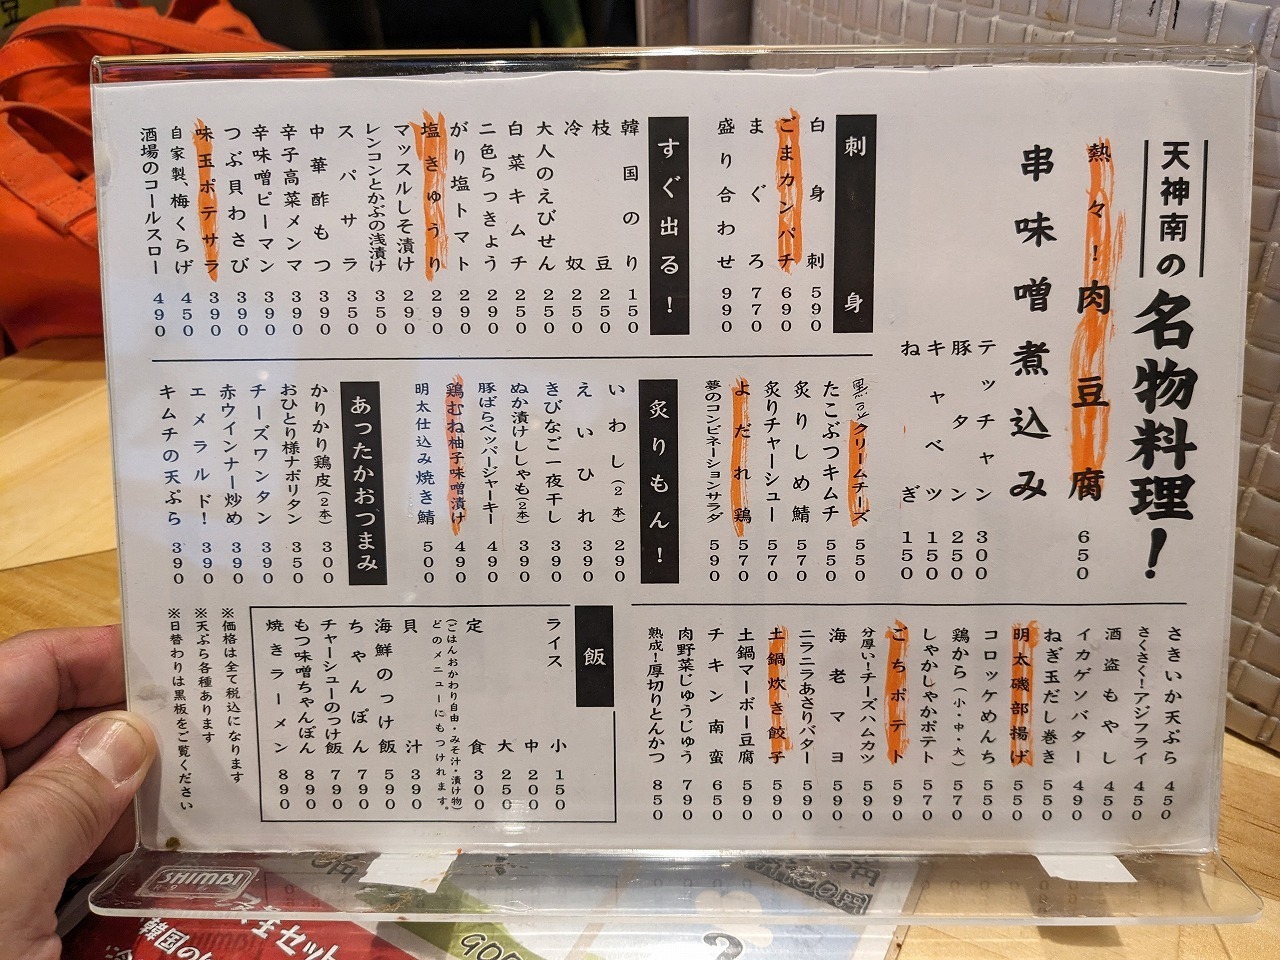 天神南の名物料理！
熱々！肉豆腐 650
串味噌煮込み
テッチャン 300
豚タン 250
キャベツ 150
ねぎ 150
刺身
白身刺 590
ごまカンパチ 690
まぐろ 770
盛り合わせ 990
すぐ出る！
韓国のり 150
枝豆 250
冷奴 250
大人のえびせん 250
白菜キムチ 250
二色らっきょう 290
がり塩トマト 290
塩きゅうり 290
マッスルしそ漬け 290
レンコンとかぶの浅漬け 350
スパサラ 350
中華酢もつ 390
辛子高菜メンマ 390
辛味噌ピーマン 390
つぶ貝わさび 390
味玉ポテサラ 390
自家製、梅くらげ 450
酒場のコールスロー 490
クリームチーズ 550
たこぶつキムチ 550
炙りしめ鯖 570
炙りチャーシュー 570
よだれ鶏 570
夢のコンビネーションサラダ 590
炙りもん！
いわし（2本） 290
えいひれ 390
きびなご一夜干し 390
ぬか漬けししゃも（2本） 390
豚ばらペッパージャーキー 490
鶏むね柚子味噌漬け 490
明太仕込み焼き鯖 500
あったかおつまみ
かりかり鶏皮（2本） 300
おひとり様ナポリタン 350
チーズワンタン 390
赤ウインナー炒め 390
エメラルド！ 390
キムチの天ぷら 390
さきいか天ぷら 450
さくさく！アジフライ 450
酒盗もやし 450
イカゲソバター 490
ねぎ玉だし巻き 550
明太磯部揚げ 550
コロッケめんち 550
鶏から（小・中・大） 570
しゃかしゃかポテト 570
こちポテト 590
分厚い！チーズハムカツ 590
海老マヨ 590
ニラニラあさりバター 590
土鍋炊き餃子 590
土鍋マーボー豆腐 590
チキン南蛮 650
肉野菜じゅうじゅう 790
熟成！厚切りとんかつ 850
飯
ライス 小 150
中 200
大 250
定食 300
（ごはんおかわり自由・みそ汁・漬け物）
どのメニューにもつけれます。
貝汁 390
海鮮のっけ飯 590
ちゃんぽん 790
チャーシューのっけ飯 790
もつ味噌ちゃんぽん 890
焼きラーメン 890
※価格は全て税込になります
※天ぷら各種あります
※日替わりは黒板をご覧ください
SHIMBI